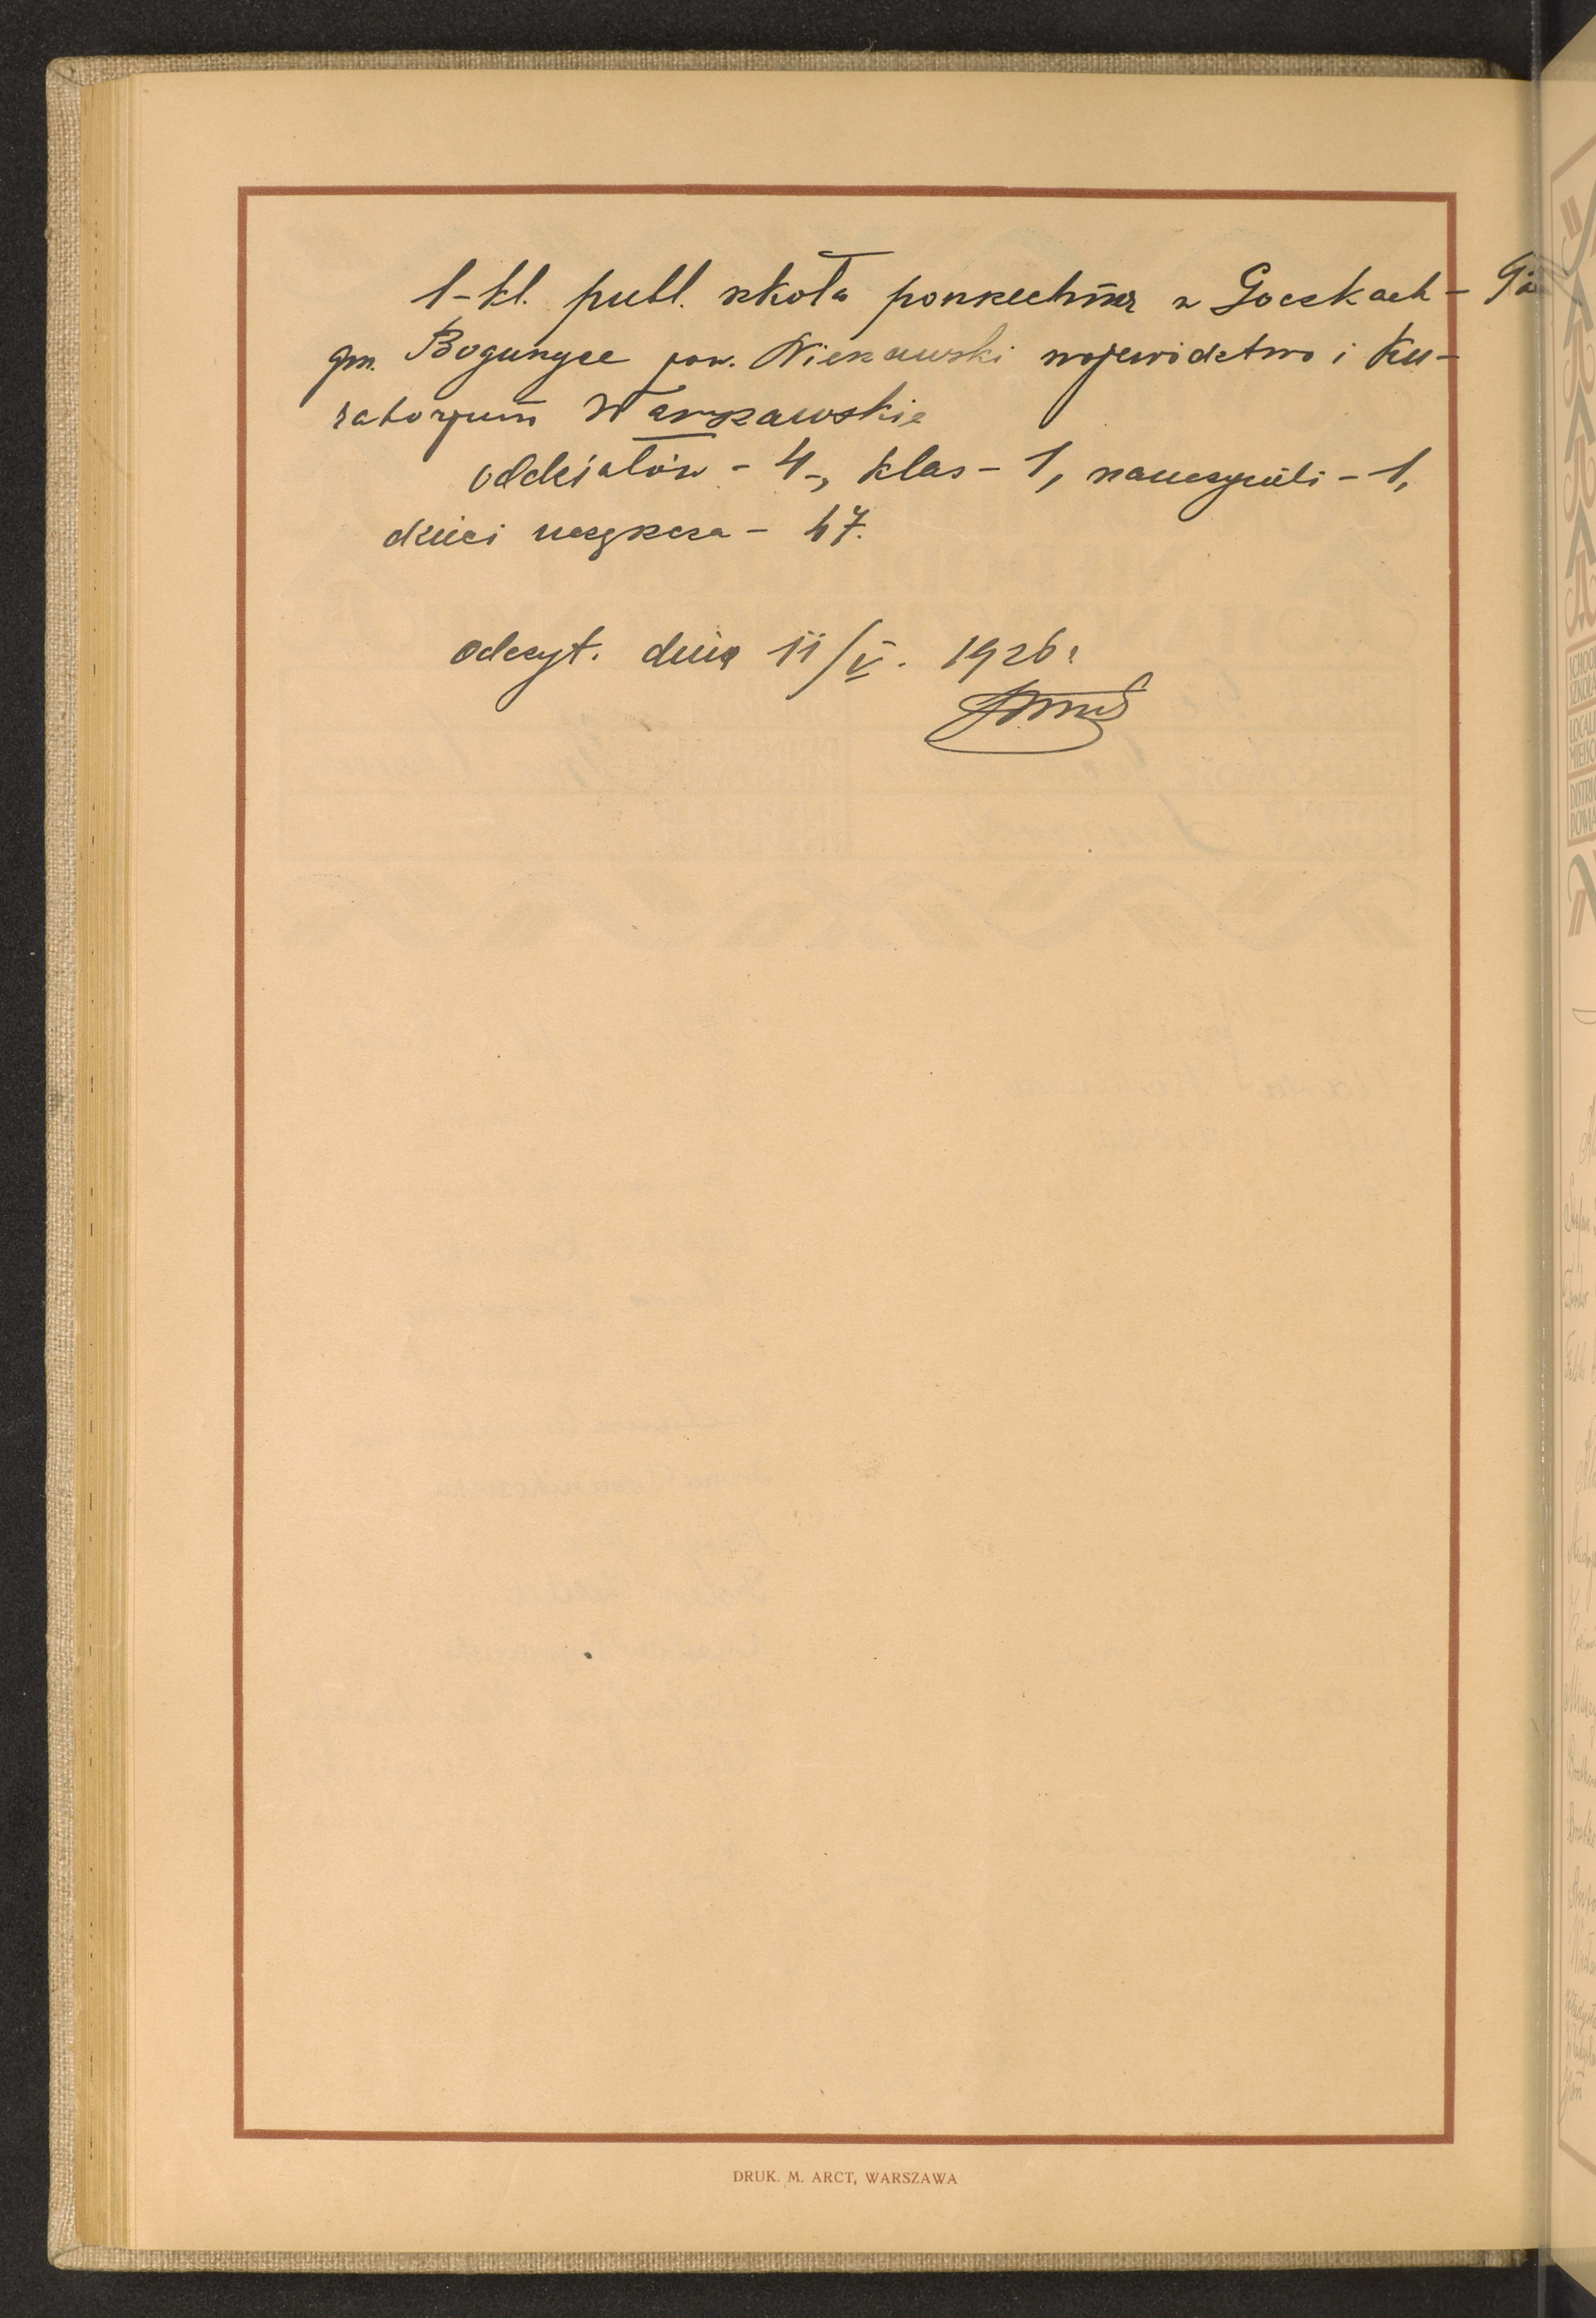 1-kl. publ. szkoła powszechna w Goczkach - Gó
gm. Boguszyce pow. Nieszawski województwo i Ku-
ratorjum Warszawskie
oddziałów - 4-, klas - 1, nauczycieli - 1,
dzieci uczęszcza - 47.
Odczyt. dnia 11/V. 1926 r
DRUK. M. ARCT, WARSZAWA